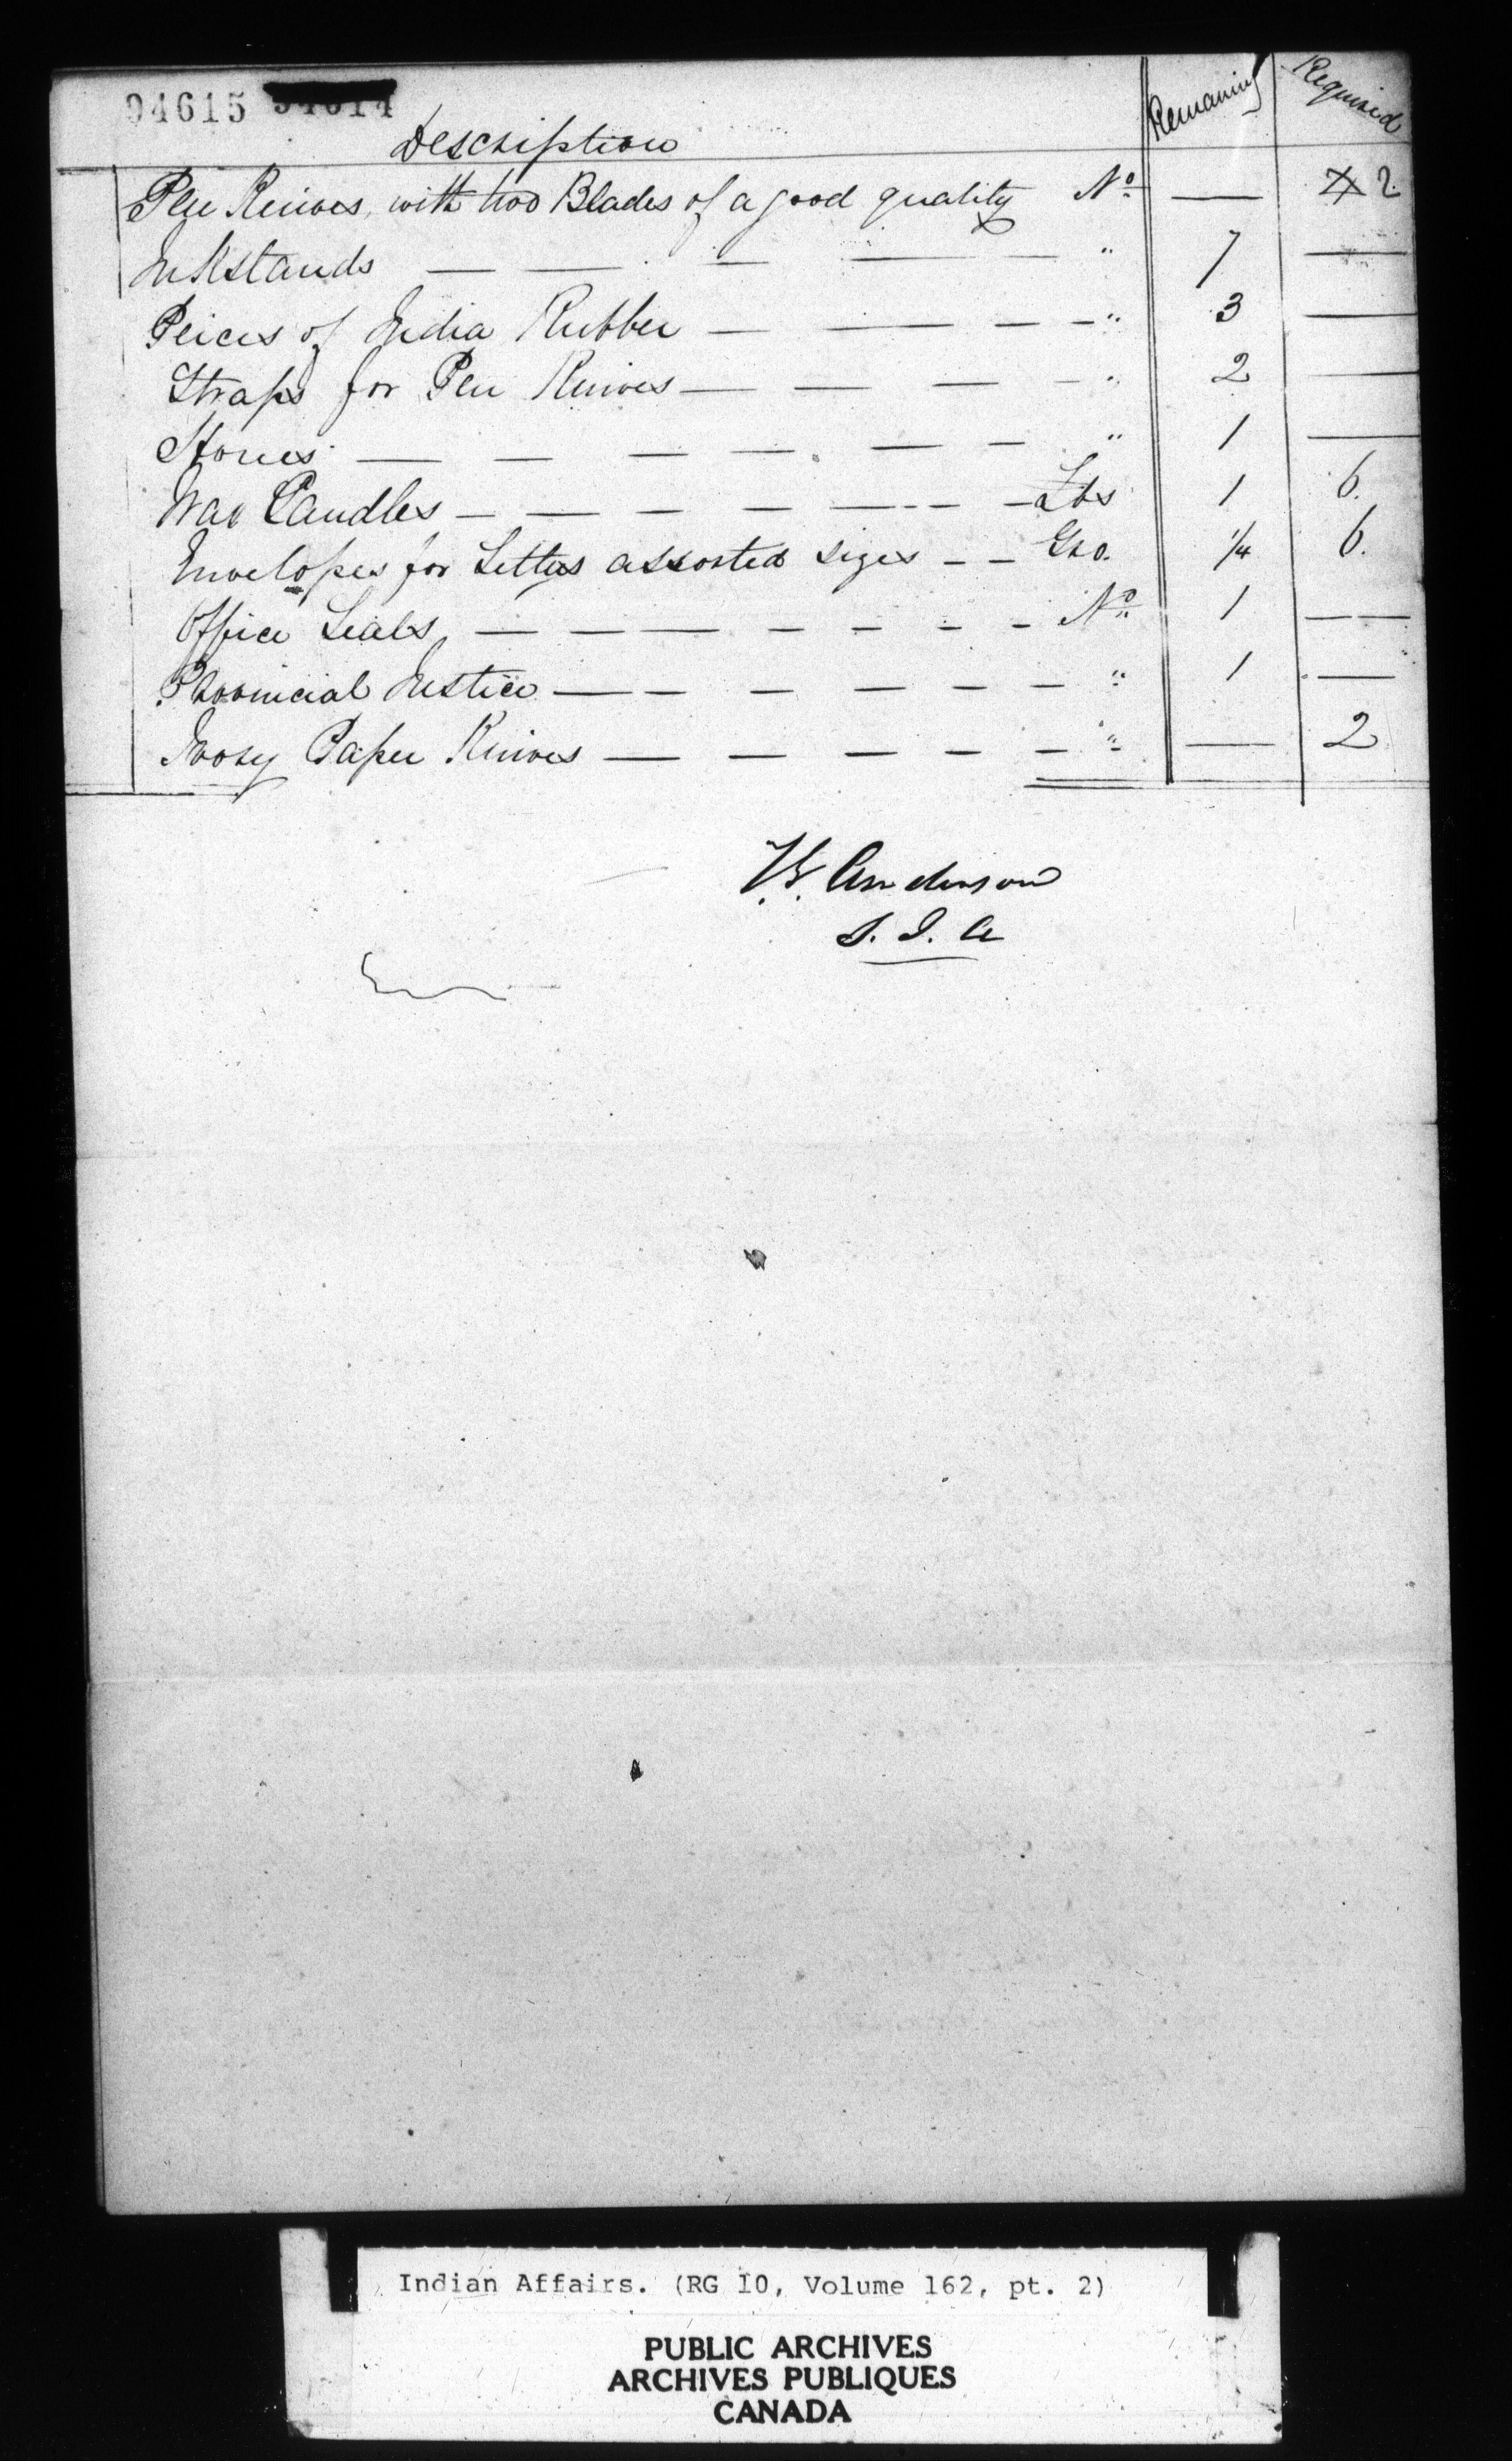 94615 94614
Description Remaining Required
Pen Knives, with two Blades of a good quality No — 2
Inkstands — — — — — " 7 —
Peices of India Rubber — — — — " 3 —
Straps for Pen Knives — — — — " 2 —
Stones — — — — — — " 1 —
Wax Candles — — — — — — — Lbs 1 6.
Envelopes for Letters assorted sizes — — Gro. 1/4 6.
Office Seals, — — — — — — — No 1 — —
Provincial Justice — — — — — — " 1 —
Ivory Paper Knives — — — — — " — 2
Anderson
S. I. A
Indian Affairs. (RG 10, Volume 162, pt. 2)
PUBLIC ARCHIVES
ARCHIVES PUBLIQUES
CANADA